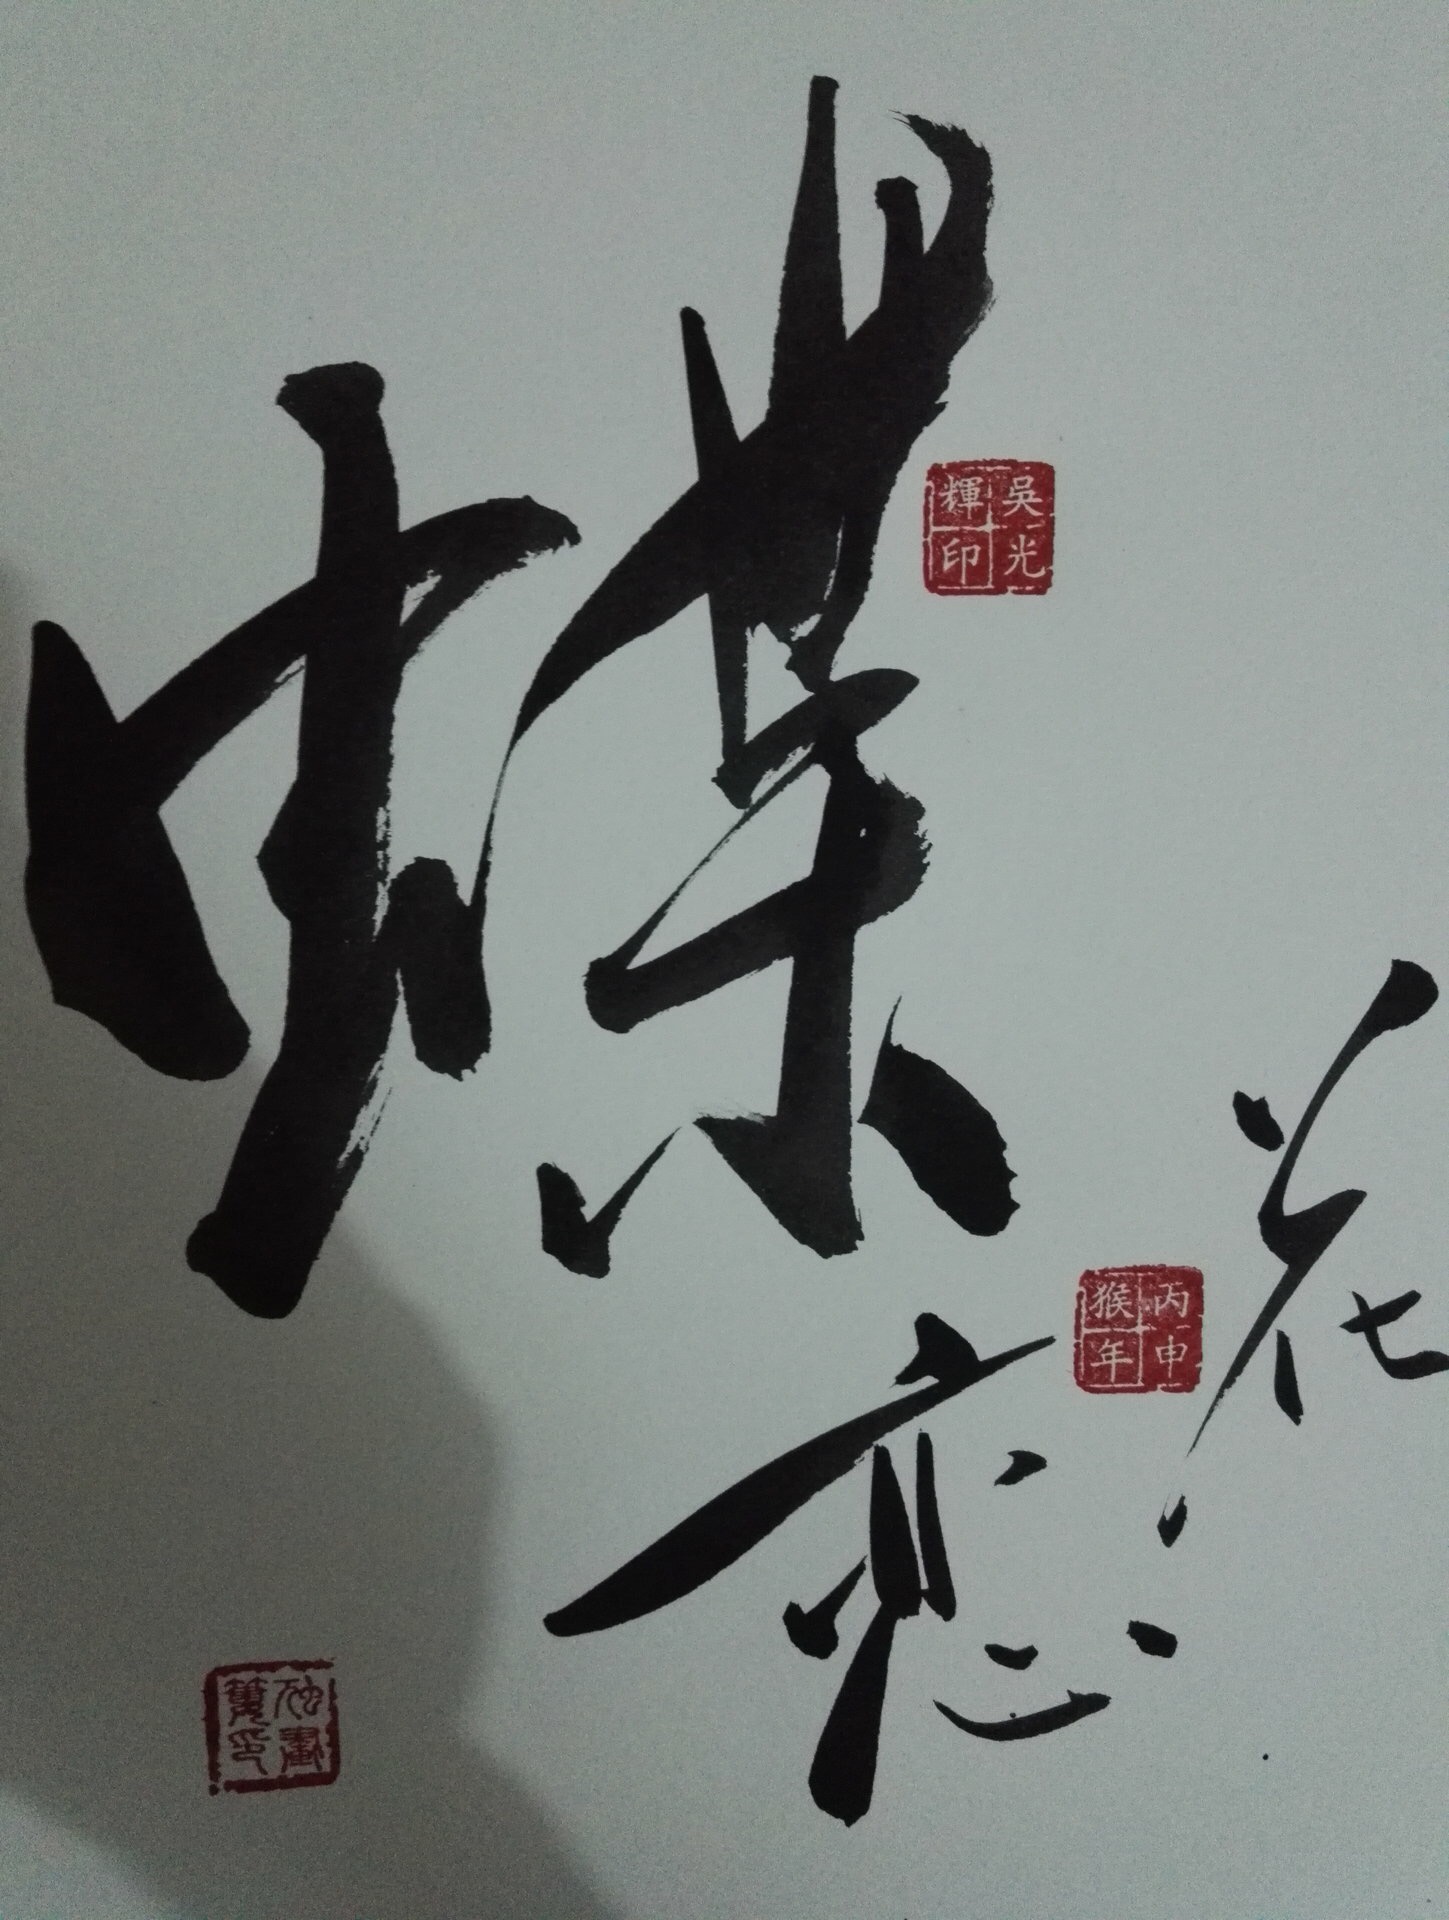 蝶
恋
花
吳光輝印
丙申猴年